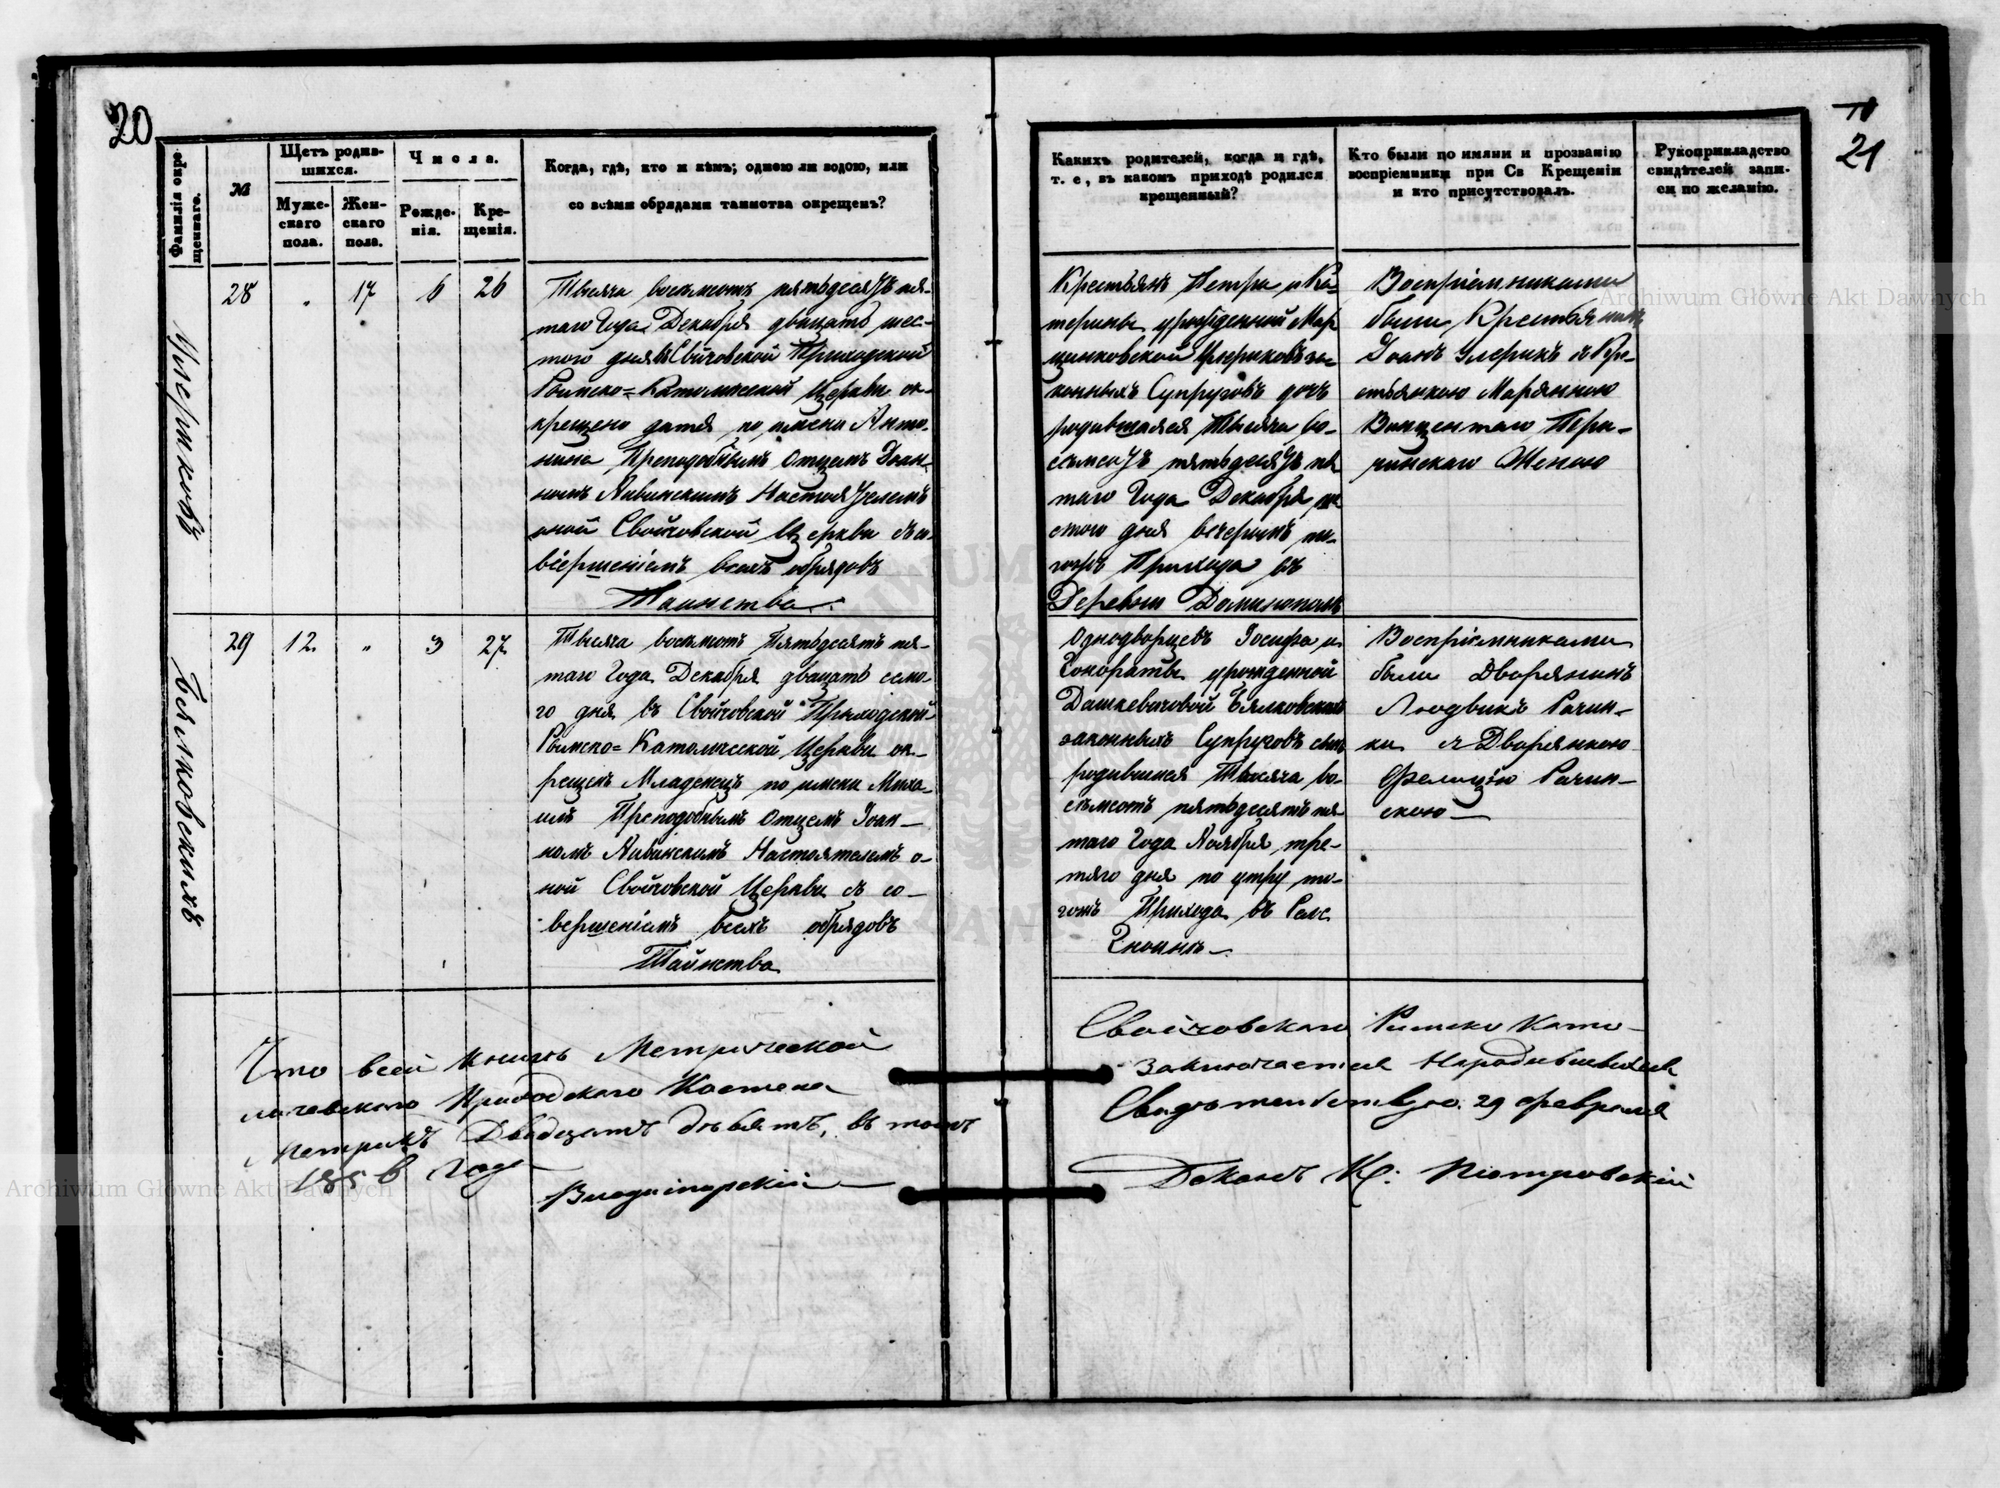 20
Фамилія окре-
щеннаго.
№
Щетъ родив-
шихся.
Муже-
скаго
пола.
Жен-
скаго
пола.
Числа.
Рожде-
нія.
Кре-
щенія.
Когда, гдѣ, кто и кѣмъ; одною ли водою, или
со всѣми обрядами таинства окрещенъ?
28
"
17
6
26
Тысяча восемьсотъ пятьдесятъ пя-
таго Года Декабря двацать шес-
того дня въ Свойчовской Приходской
Римско=Католической Церкви ок-
крещено дитя по имени Анто-
нина Преподобнымъ Отцемъ Іоан-
номъ Настоятелемъ
оной Свойчовской Церкви съ со-
вершеніемъ всехъ обрядовъ
Таинства.
29
12.
"
3
27
Тысяча восемьсотъ Пятьдесятъ пя-
таго Года Декабря двацать семо-
го дня въ Свойчовской Приходской
Римско=Католической Церкви ок-
рещенъ Младенецъ по имени Миха-
илъ Преподобнымъ Отцемъ Іоан-
номъ Настоятелемъ о-
ной Свойчовской Церкви съ со-
вершеніемъ всехъ обрядовъ
Таинства
Бялковскихъ
Что всей книгѣ Метрической
личевского Приходского Костела
Метрикъ Двадцать девять, въ томъ
1856 году
Владимірскій
21
Какихъ родителей, когда и гдѣ,
т. е, въ какомъ приходѣ родился
крещенный?
Кто были по имяни и прозванію
воспріемники при Св Крещеніи
и кто присутствовалъ.
Рукоприкладство
свидѣтелей запи-
си по желанію.
Крестьянъ Петра и Ка-
терины урожденной Мар
цинковской за-
конныхъ Супруговъ дочь
родившаяся Тысяча во-
семьсотъ пятьдесятъ пя
таго Года Декабря ше
стого дня вечеромъ то-
гожъ Прихода въ
Деревни Доминополь
Воспріемниками
были Крестьянинъ
Іоанъ Улерикъ съ Кре-
стьянкою Марянною
Винцентаго
Женою
Однодворцевъ Іосифа и
Гонораты урожденной
Дашкевичовой Бялковскихъ
законныхъ Супруговъ сынъ
родившійся Тысяча во-
семьсотъ пятьдесятъ пя
таго Года Ноября тре-
тяго дня по утру то-
гожъ Прихода въ Селе
Гнойнѣ
Воспріемниками
были Дворянинъ
Людвикъ Рачин-
ки съ Дворянкою
Фелиціею Рачин-
скою
Свойчовского Римско Като-
заключается Народившихся
Свидѣтельствую. 29 февраля
Деканъ К. Піотровскій
Archiwum Główne Akt Dawnych
Archiwum Główne Akt Dawnych